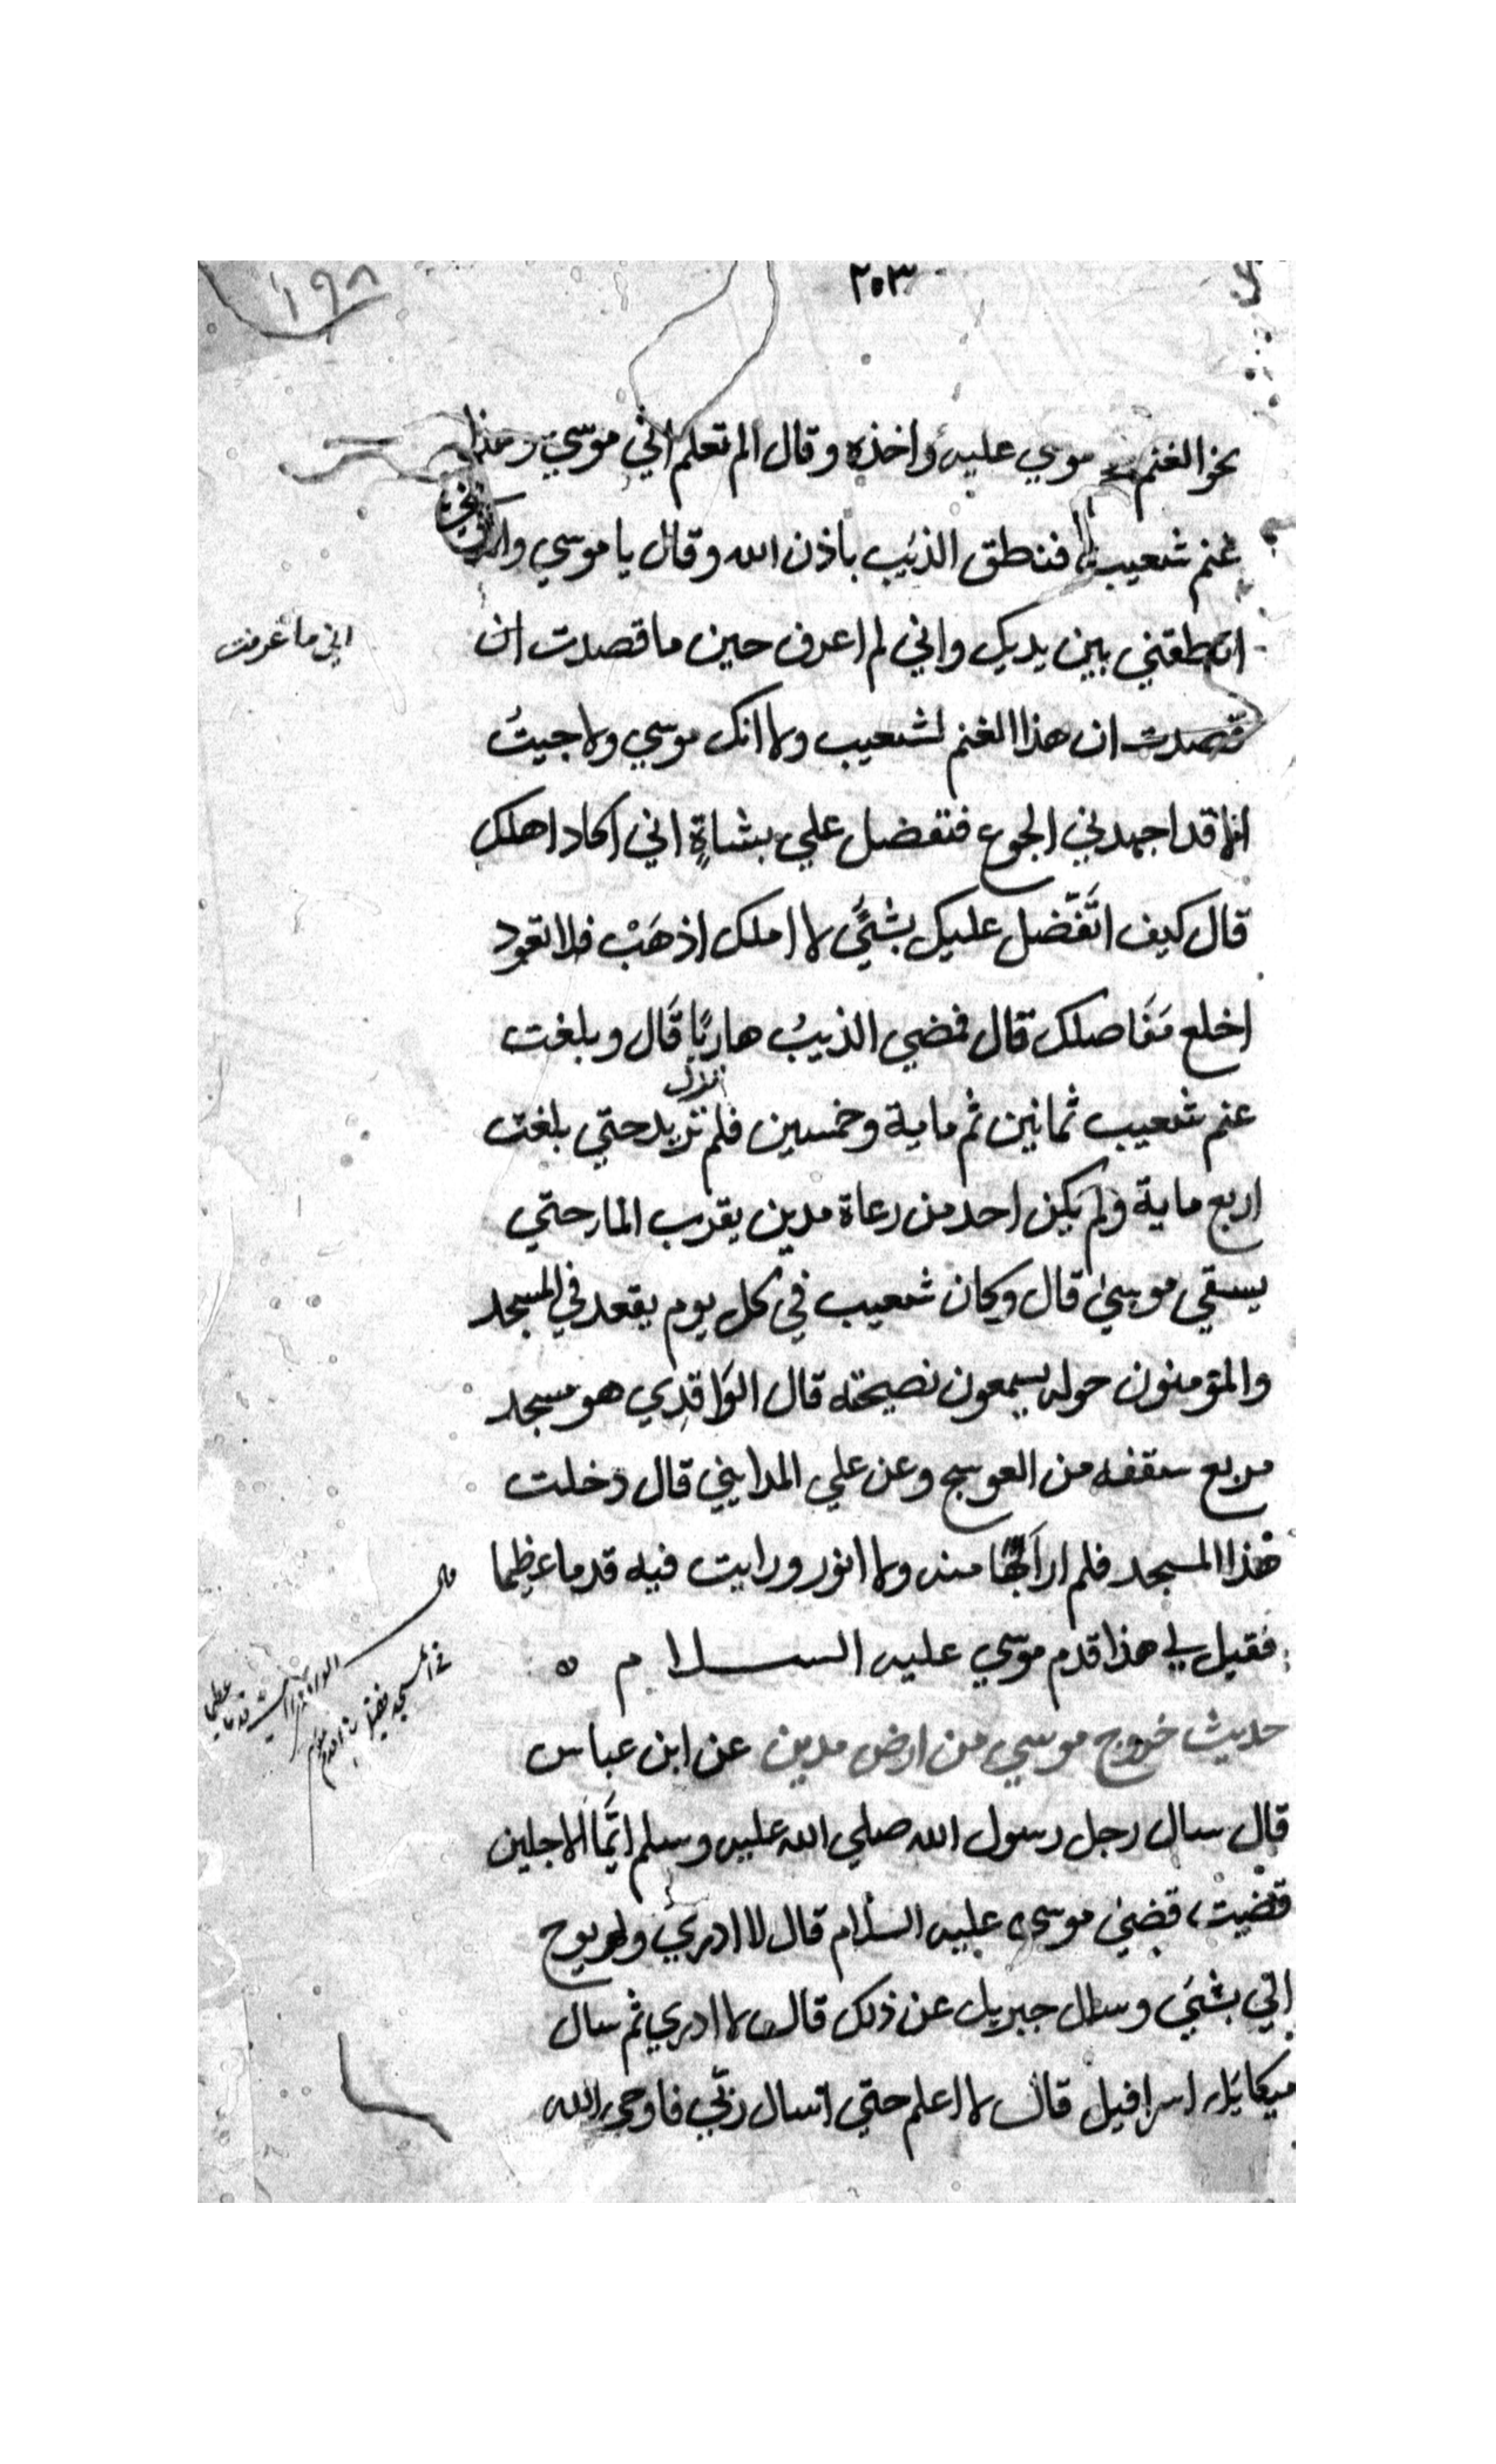 ٢٠٣
١٩٨
نحو الغنم موسي عليه واخذه وقال الم تعلم اني موسي وهذا
غنم شعيب فنطق الذيب باذن الله وقال يا موسي والذي
انطقني بين يديك واني لم اعرف حين ما قصدت ان
اني ما عرفت
قصدت ان هذا الغنم لشعيب ولا انك موسي ولا جيتُ
انا قد اجهدني الجوع فتفضل علي بشاةٍ اني اكاد اهلك
قال كيف اتَفَّضل عليك بشئَي لا املك اذهَبْ فلا تعود
اخلع مَفَاصلك قال فمضي الذيبُ هاربًا قَال وبلغت
غنم شعيب ثمانين ثم ماية وخمسين فلم تزيد حتي بلغت
تزل
اربع ماية ولم يكن احد من رعاة مدين يقرب الما حتي
يسقي موسي قال وكان شعيب في كل يوم يقعد في المسجد
والمؤمنون حوله يسمعون نصيحته قال الوَاقدِي هو مسجد
مربع سقفه من العوسج وعن علي المدايني قال دخلت
هذا المسجد فلم ار منه ولا انور ورايت فيه قدما عظيما
فقيل لي هذا قدم موسي عليه الســـلام ه
قال
حديث خروج موسي من ارض مدين عن ابن عباس
قال سال رجل رسول الله صلي الله عليه وسلم ايَّما الاجلين
قضيت قضي موسي عليه السلام قال لا ادري ولم يوح
الي بشئَي وسال جبريل عن ذلك قال لا ادري ثم سال
ميكايل اسرافيل قال لا اعلم حتي اسال ربّي فاوحي الله